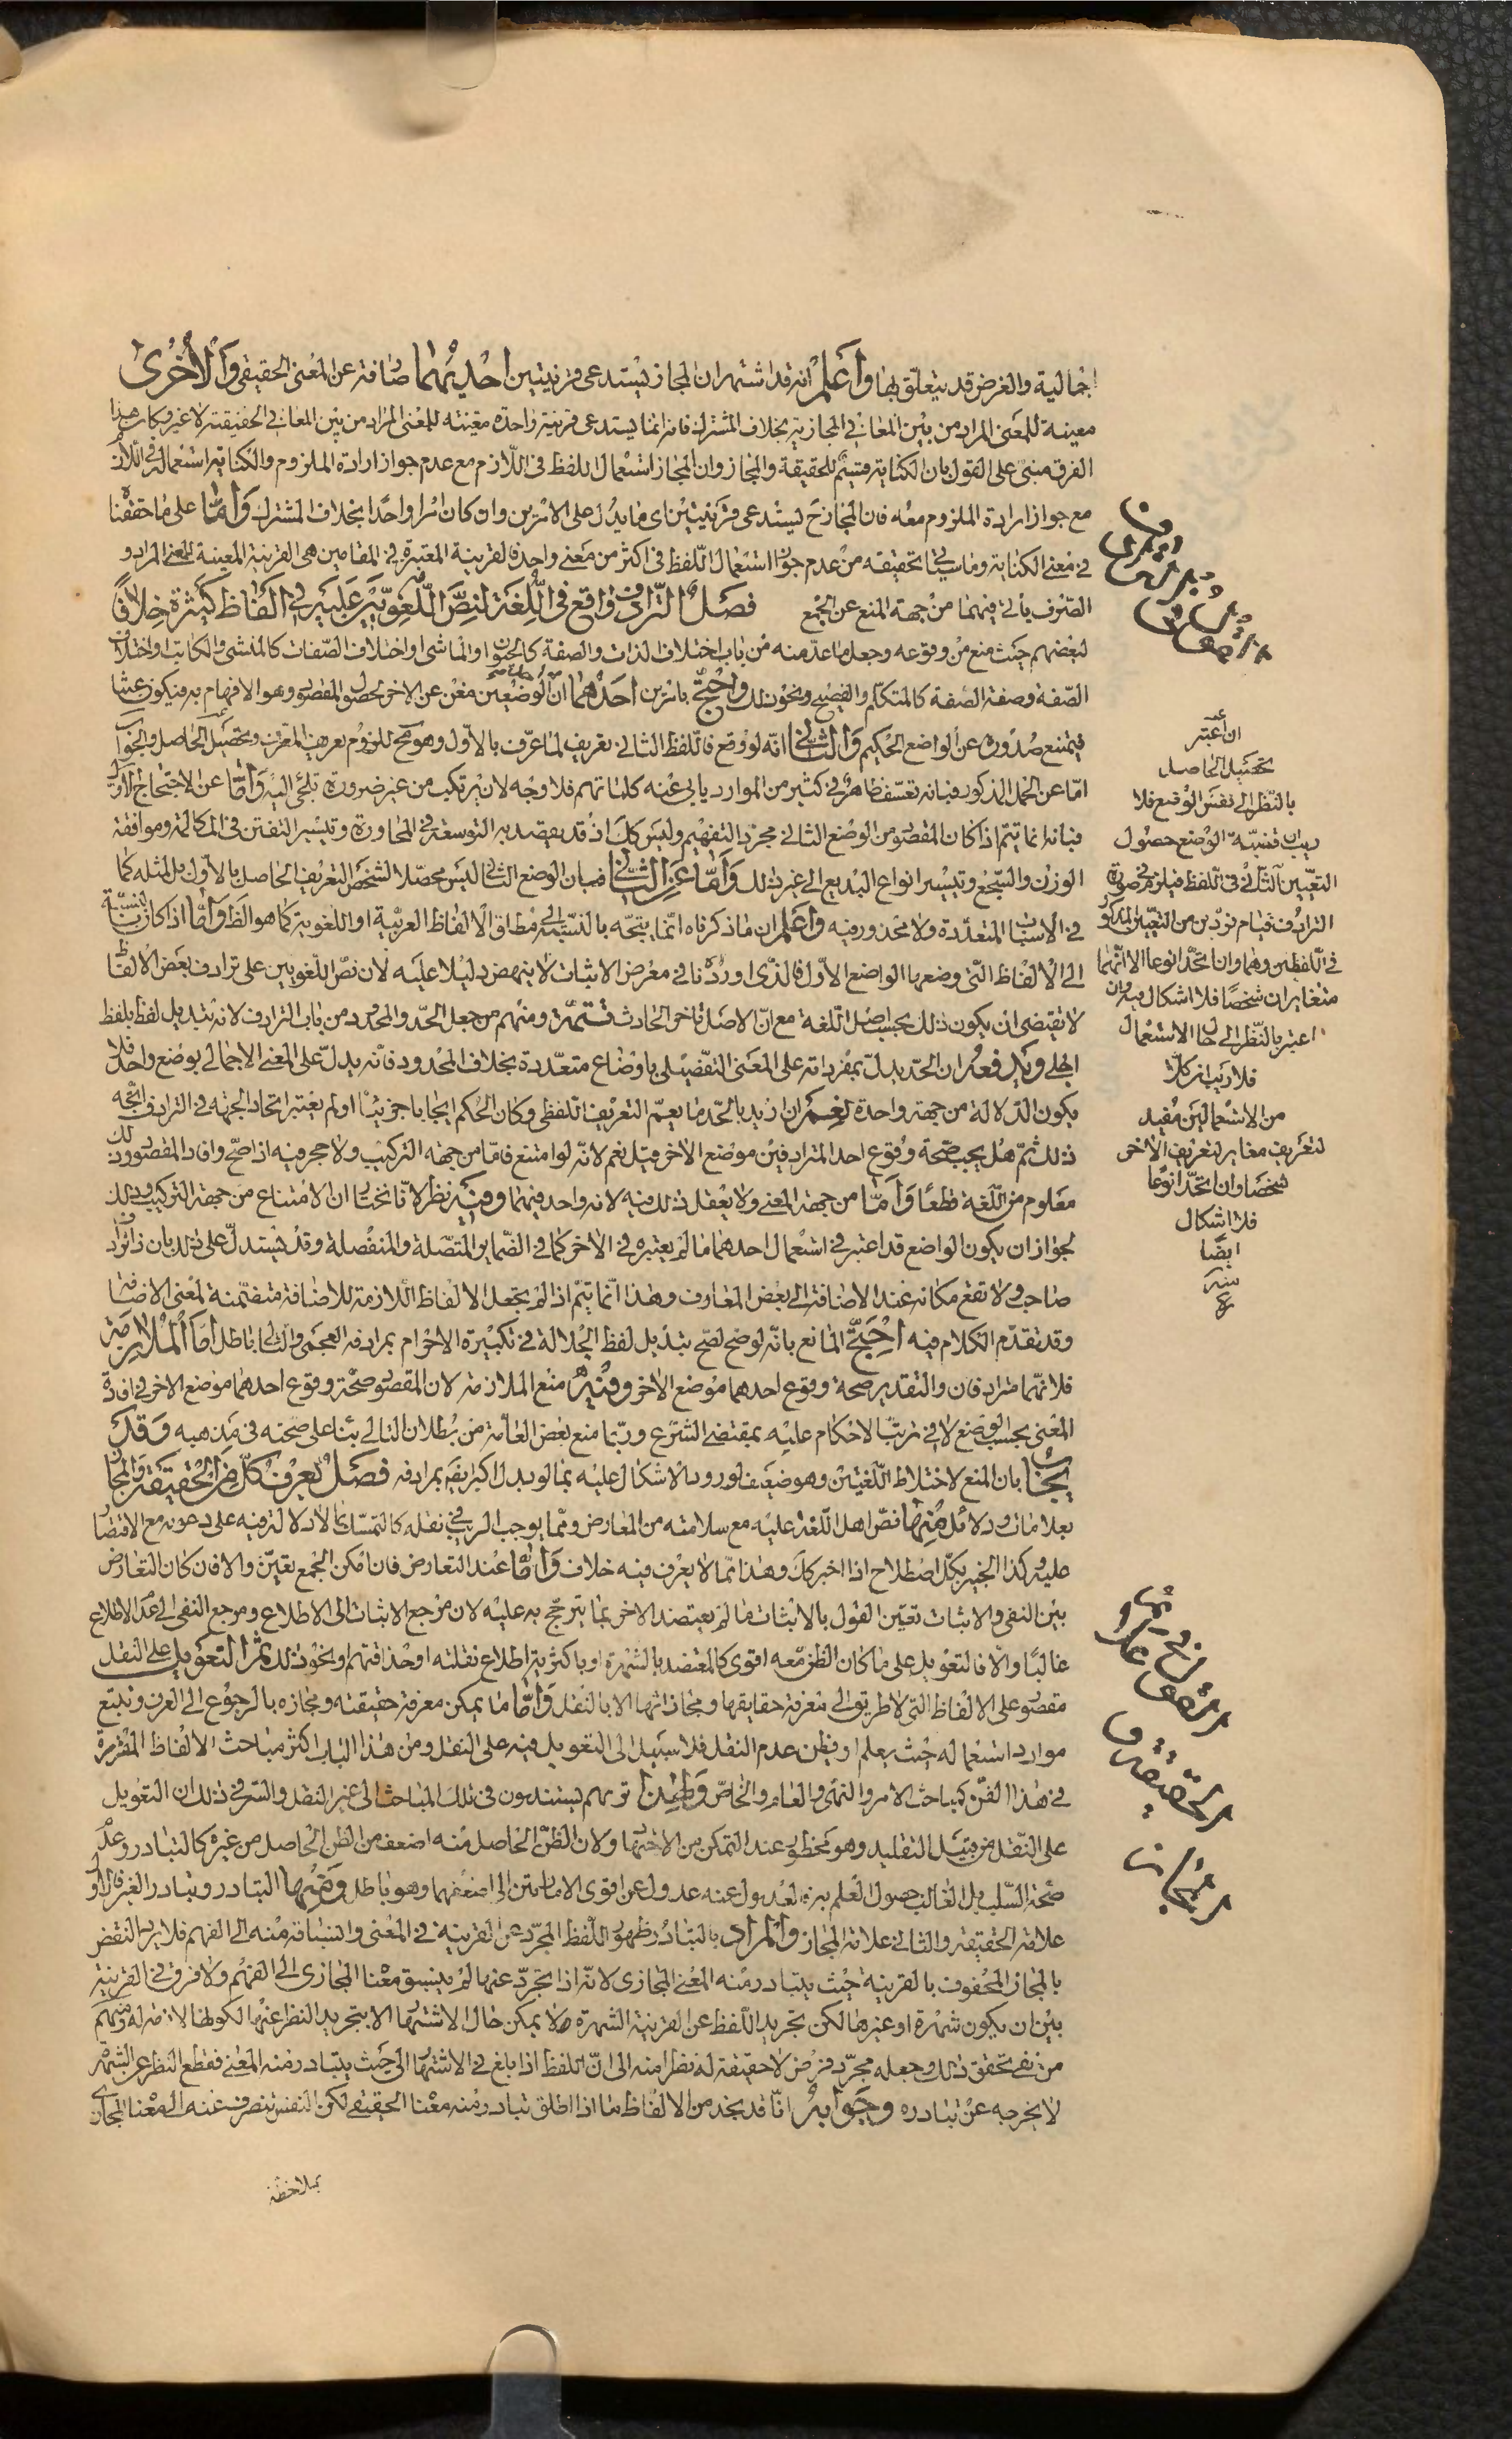 اجمالية والغرض قد يتعلق بها واعلم انه قد اشتهر ان المجاز يستدعى قرينتين احديهما صارفة عن المعنى الحقيقى والاخرى
معينة للمعنى المراد من بين المعانى المجازية بخلاف المشترك فانه انما يستدعى قرينة واحدة معينة للمعنى المراد من بين المعانى الحقيقية لا غير وكان هذا
الفرق مبنى على القول بان الكناية قسيم للحقيقة والمجاز وان المجاز استعمال اللفظ فى اللازم مع عدم جواز ارادة الملزوم والكناية استعماله فى اللازم
مع جواز ارادة الملزوم معه فان المجاز ح يستدعى قرينتين اى ما يدل على الامرين وان كان امرا واحدا بخلاف المشترك واما على ما حققنا
فى معنى الكناية وما سياتى تحقيقه من عدم جواز استعمال اللفظ فى اكثر من معنى واحد فالقرينة المعتبرة فى المقامين هى القرينة المعينة للمعنى المراد و
الصرف ياتى فيهما من جهة المنع عن الجمع فصل الترادف واقع فى اللغة لنص اللغويين عليه فى الفاظ كثيرة خلافا
لبعضهم حيث منع من وقوعه وجعل ما عد منه من باب اختلاف الذات والصفة كالحيوان والماشى او اختلاف الصفات كالمنشى والكاتب او اختلاف
الصفة وصفة الصفة كالمتكلم والفصيح ونحو ذلك واحتج بامرين احدهما ان احد الوضعين مغن عن الاخر لحصول المقصود وهو الافهام به فيكون عبثا
فيمتنع صدوره عن الواضع الحكيم والثانى انه لو وقع فاللفظ الثانى تعريف لما عرف بالاول وهو مح للزوم تعريف المعرف وتحصيل الحاصل والجواب
اما عن الحمل المذكور فبانه تعسف ظاهر فى كثير من الموارد يابى عنه كلماتهم فلا وجه لان يرتكب من غير ضرورة تلجئ اليه واما عن الاحتجاج الاول
فبانه انما يتم اذا كان المقصود من الوضع الثانى مجرد التفهيم وليس كك اذ قد يقصد به التوسعة فى المحاورة وتيسير التفنن فى المكالمة وموافقة
الوزن والسجع وتيسير انواع البديع الى غير ذلك واما عن الثانى فبان الوضع الثانى ليس محصلا لشخص التعريف الحاصل بالاول بل لمثله كما
فى الاسباب المتعددة ولا محذور فيه واعلم ان ما ذكرناه انما يتجه بالنسبة الى مطلق الالفاظ العربية او اللغوية كما هو الظ واما اذا كان بالنسبة
الى الالفاظ التى وضعها الواضع الاول فالذى اوردنا فى معرض الاثبات لا ينهض دليلا عليه لان نص اللغويين على ترادف بعض الالفاظ
لا يقتضى ان يكون ذلك بحسب اصل اللغة مع ان الاصل تاخر الحادث تتمة ومنهم من جعل الحد والمحدود من باب الترادف لانه تبديل لفظ بلفظ
اجلى ويدفعه ان الحد يدل بمفرداته على المعنى التفصيلى باوضاع متعددة بخلاف المحدود فانه يدل على المعنى الاجمالى بوضع واحد فلا
يكون الدلالة من جهة واحدة نعم ان اريد بالحد ما يعم التعريف اللفظى وكان الحكم ايجابا جزئيا او لم يعتبر اتحاد الجهة فى الترادف اتجه
ذلك ثم هل يجب صحة وقوع احد المترادفين موضع الاخر قيل نعم لانه لو امتنع فاما من جهة التركيب ولا حجر فيه اذا صح وافاد المقصود وذلك
معلوم من اللغة قطعا واما من جهة المعنى ولا يعقل ذلك فيه لانه واحد فيهما وفيه نظر لانا نختار ان الامتناع من جهة التركيب وذلك
لجواز ان يكون الواضع قد اعتبر فى استعمال احدهما ما لم يعتبره فى الاخر كما فى الضماير المتصلة والمنفصلة وقد يستدل على ذلك بان ذا يرادف
صاحب ولا تقع مكانه عند الاضافة الى بعض المعارف وهذا انما يتم اذا لم يجعل الالفاظ اللازمة للاضافة متضمنة لمعنى الاضافة
وقد تقدم الكلام فيه احتج المانع بانه لو صح لصح تبديل لفظ الجلالة فى تكبيرة الاحرام بمرادفه العجمى والتالى باطل اما الملازمة
فلانهما مترادفان والتقدير صحة وقوع احدهما موضع الاخر وفيه منع الملازمة لان المقصود صحة وقوع احدهما موضع الاخر فى افادة
المعنى بحسب الوضع لا فى ترتب الاحكام عليه بمقتضى الشرع وربما منع بعض العامة من بطلان التالى بناء على صحته فى مذهبه وقد
يجاب بان المنع لاختلاط اللغتين وهو ضعيف لورود الاشكال عليه بما لو بدل اكبر ايضا بمرادفه فصل يعرف كل من الحقيقة والمجاز
بعلامات ودلائل منها نص اهل اللغة عليه مع سلامته من المعارض ومما يوجب الريب فى نقله كالتمسك بما لا دلالة فيه على دعويه مع الاقتصار
عليه وكذا الخبير بكل اصطلاح اذا اخبر كك وهذا مما لا يعرف فيه خلاف واما عند التعارض فان امكن الجمع تعين والا فان كان التعارض
بين النفى والاثبات تعين القول بالاثبات ما لم يعتضد الاخر بما يترجح به عليه لان مرجع الاثبات الى الاطلاع ومرجع النفى الى عدم الاطلاع
غالبا والا فالتعويل على ما كان الظن معه اقوى كالمعتضد بالشهرة او باكثرية اطلاع نقلته او حذاقتهم او نحو ذلك ثم التعويل على النقل
مقصور على الالفاظ التى لا طريق الى معرفة حقايقها ومجازاتها الا بالنقل واما ما يمكن معرفة حقيقته ومجازه بالرجوع الى العرف وتتبع
موارد استعماله حيث يعلم او يظن عدم النقل فلا سبيل الى التعويل فيه على النقل ومن هذا الباب اكثر مباحث الالفاظ المقررة
فى هذا الفن كمباحث الامر والنهى والعام والخاص ولهذا تريهم يستندون فى تلك المباحث الى غير النقل والسر فى ذلك ان التعويل
على النقل من قبيل التقليد وهو محظور عند التمكن من الاجتهاد ولان الظن الحاصل منه اضعف من الظن الحاصل من غيره كالتبادر وعدم
صحة السلب بل الغالب حصول العلم به فالعدول عنه عدول عن اقوى الامارتين الى اضعفهما وهو باطل ومنها التبادر وتبادر الغير فالاول
علامة الحقيقة والثانى علامة المجاز والمراد بالتبادر ظهور اللفظ المجرد عن القرينة فى المعنى وانسباقه منه الى الفهم فلا يرد النقض
بالمجاز المحفوف بالقرينة حيث يتبادر منه المعنى المجازى لانه اذا تجرد عنها لم ينسبق معناه المجازى الى الفهم ولا فرق فى القرينة
بين ان يكون شهرة او غيرها لكن تجريد اللفظ عن القرينة الشهرة لا يمكن حال الاشتهار الا بتجريد النظر عنها لكونها لازمة له ومنهم
من نفى تحقق ذلك وجعله مجرد فرض لا حقيقة له نظرا منه الى ان اللفظ اذا بلغ فى الاشتهار الى حيث يتبادر منه المعنى فقطع النظر عن الشهرة
لا يخرجه عن تبادره وجوابه انا قد نجد من الالفاظ ما اذا اطلق تبادر منه معناه الحقيقى لكن النفس تنصرف عنه الى المعنى المجازى
بملاحظة
ان اعتبر
تحصيل الحاصل
بالنظر الى نفس الوضع فلا
ريب
الوضع حصول
التعيين الثانى فى اللفظ فيلزم فى صورة
الترادف قيام فردين من التعيين المذكور
فى اللفظين وهما وان اتحدا نوعا الا انهما
متغايران شخصا فلا اشكال فيه وان
اعتبر بالنظر الى حال الاستعمال
فلا ريب ان كلا
من الاستعمالين مفيد
لتعريف مغاير لتعريف الاخر
شخصا وان اتحدا نوعا
فلا اشكال
ايضا
منه